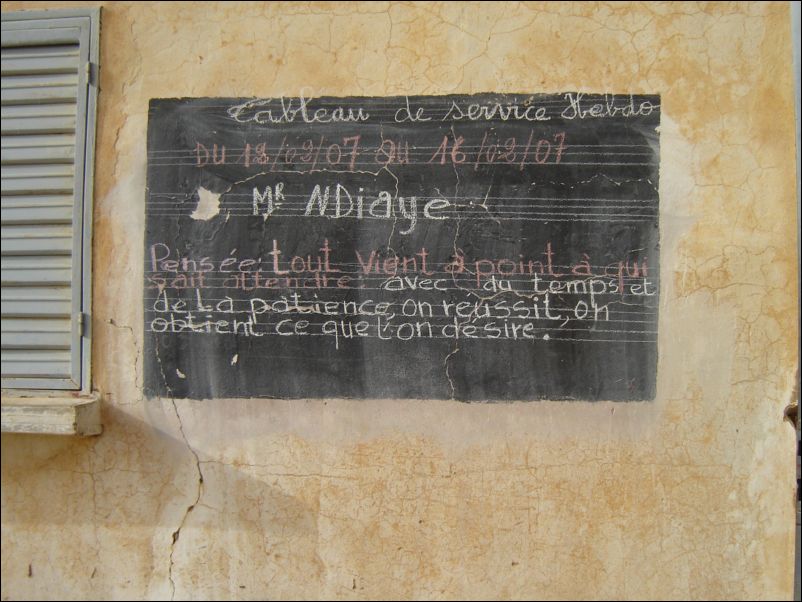 Tableau de service Hebdo
DU 12/02/07 au 16/02/07
Mr NDiaye
Pensée: tout vient à point à qui
sait attendre avec du temps et
de la patience, on réussit, on
obtient ce que l'on désire.